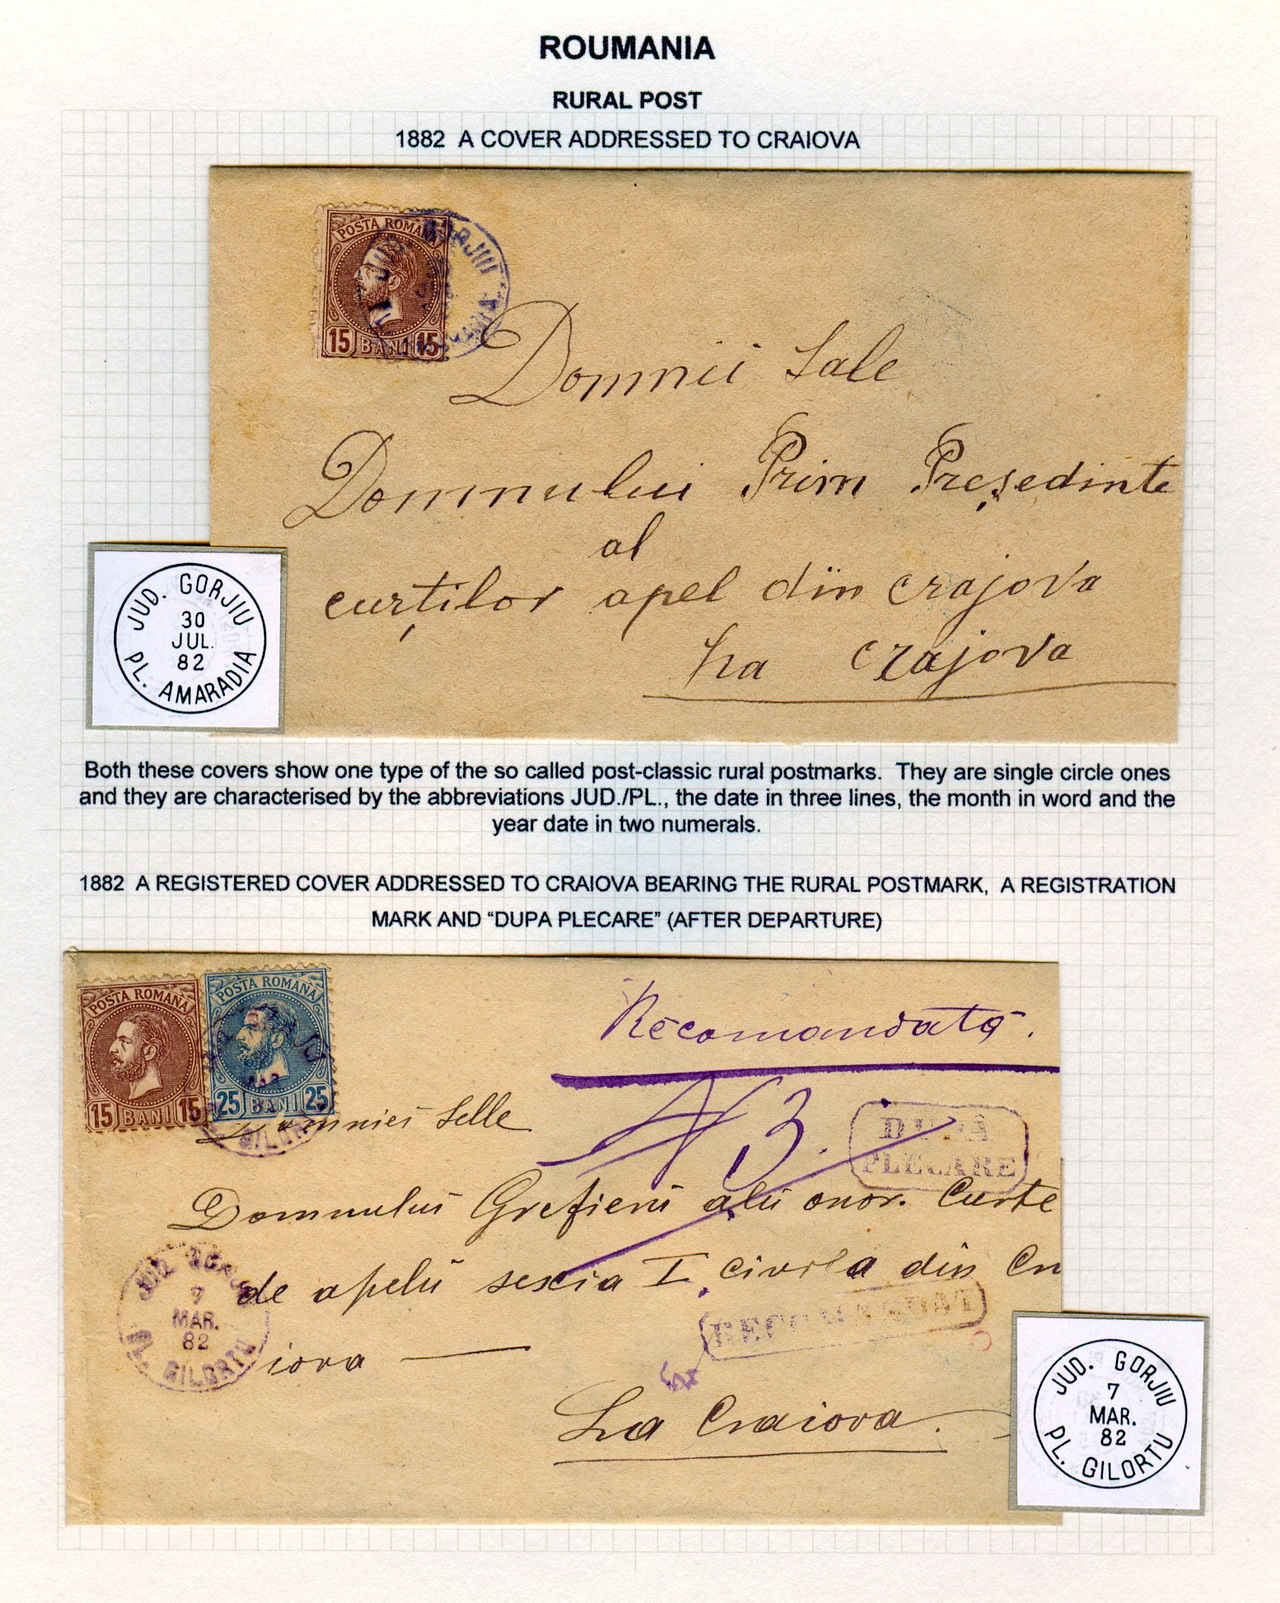 ROUMANIA
RURAL POST
1882 A COVER ADDRESSED TO CRAIOVA
POSTA ROMANA
15 BANI 15
GORJIU
Domnii Sale
Domnului Prim Preşedinte
al
curţilor apel din Crajova
La Crajova
JUD. GORJIU
30
JUL.
82
PL. AMARADIA
Both these covers show one type of the so called post-classic rural postmarks. They are single circle ones
and they are characterised by the abbreviations JUD./PL., the date in three lines, the month in word and the
year date in two numerals.
1882 A REGISTERED COVER ADDRESSED TO CRAIOVA BEARING THE RURAL POSTMARK, A REGISTRATION
MARK AND “DUPA PLECARE” (AFTER DEPARTURE)
POSTA ROMANA
15 BANI 15
POSTA ROMANA
25 BANI 25
Recomandată.
N 3.
DUPĂ
PLECARE
Domniei Selle
Domnului Grefieru alu onor. Curte
de apelu secsia I, civila din Cra
iova
La Craiova.
JUD. GORJIU
7
MAR.
82
PL. GILORTU
JUD. GORJIU
7
MAR.
82
PL. GILORTU